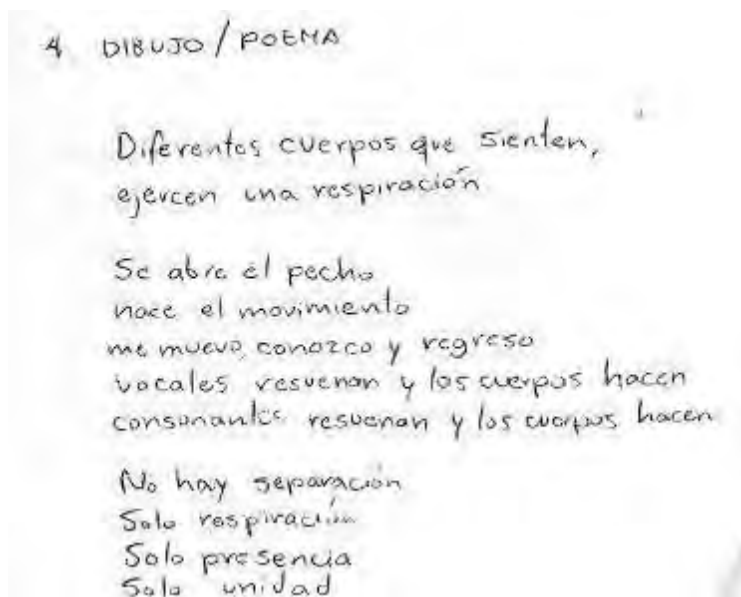 4 DIBUJO / POEMA
Diferentes cuerpos que sienten,
ejercen una respiración
Se abre el pecho
nace el movimiento
me muevo, conozco y regreso
vocales resuenan y los cuerpos hacen
consonantes resuenan y los cuerpos hacen
No hay separación
Solo respiración
Solo presencia
Solo unidad